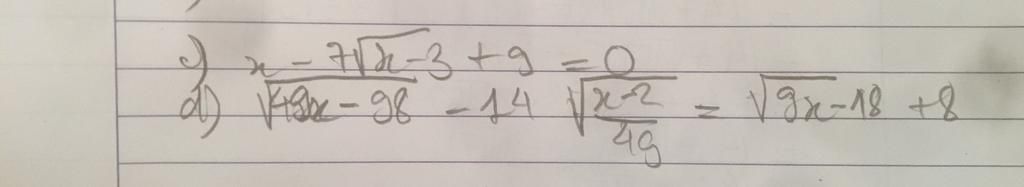 c) x - 7√x-3 + 9 = 0
d) √49x - 98 - 14 √x-2/49 = √9x-18 + 8